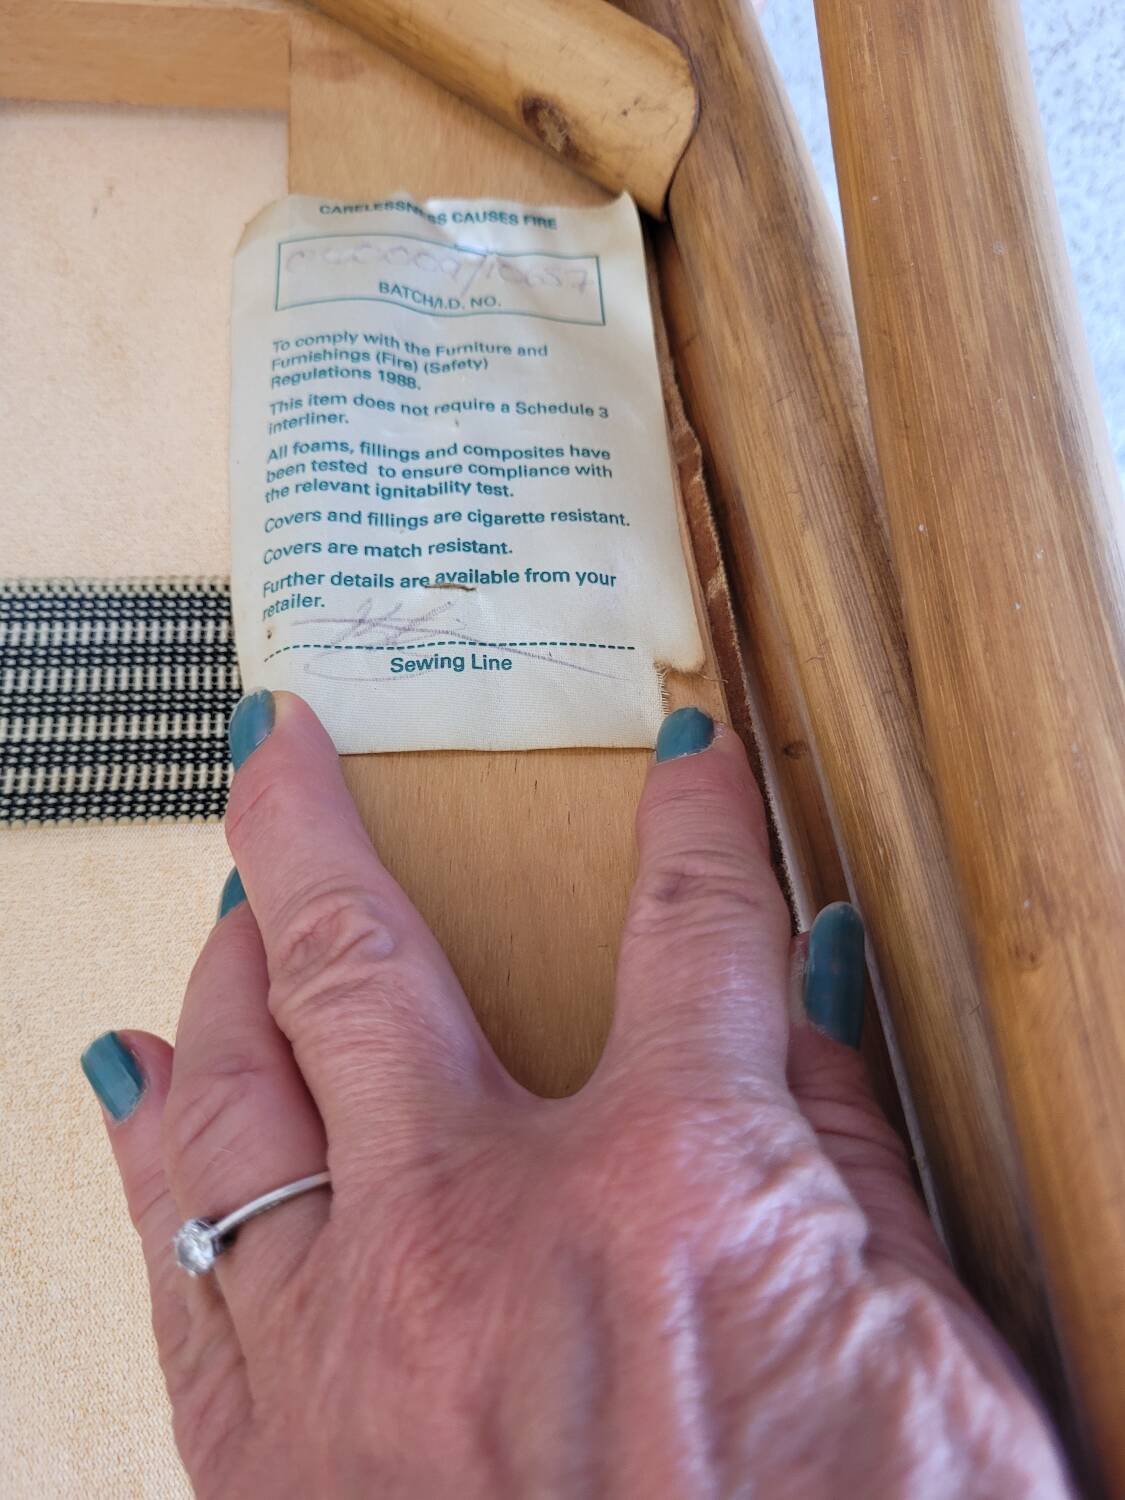 CARELESSNESS CAUSES FIRE
BATCH/I.D. NO.
To comply with the Furniture and
Furnishings (Fire) (Safety)
Regulations 1988.
This item does not require a Schedule 3
interliner.
All foams, fillings and composites have
been tested to ensure compliance with
the relevant ignitability test.
Covers and fillings are cigarette resistant.
Covers are match resistant.
Further details are available from your
retailer.
Sewing Line